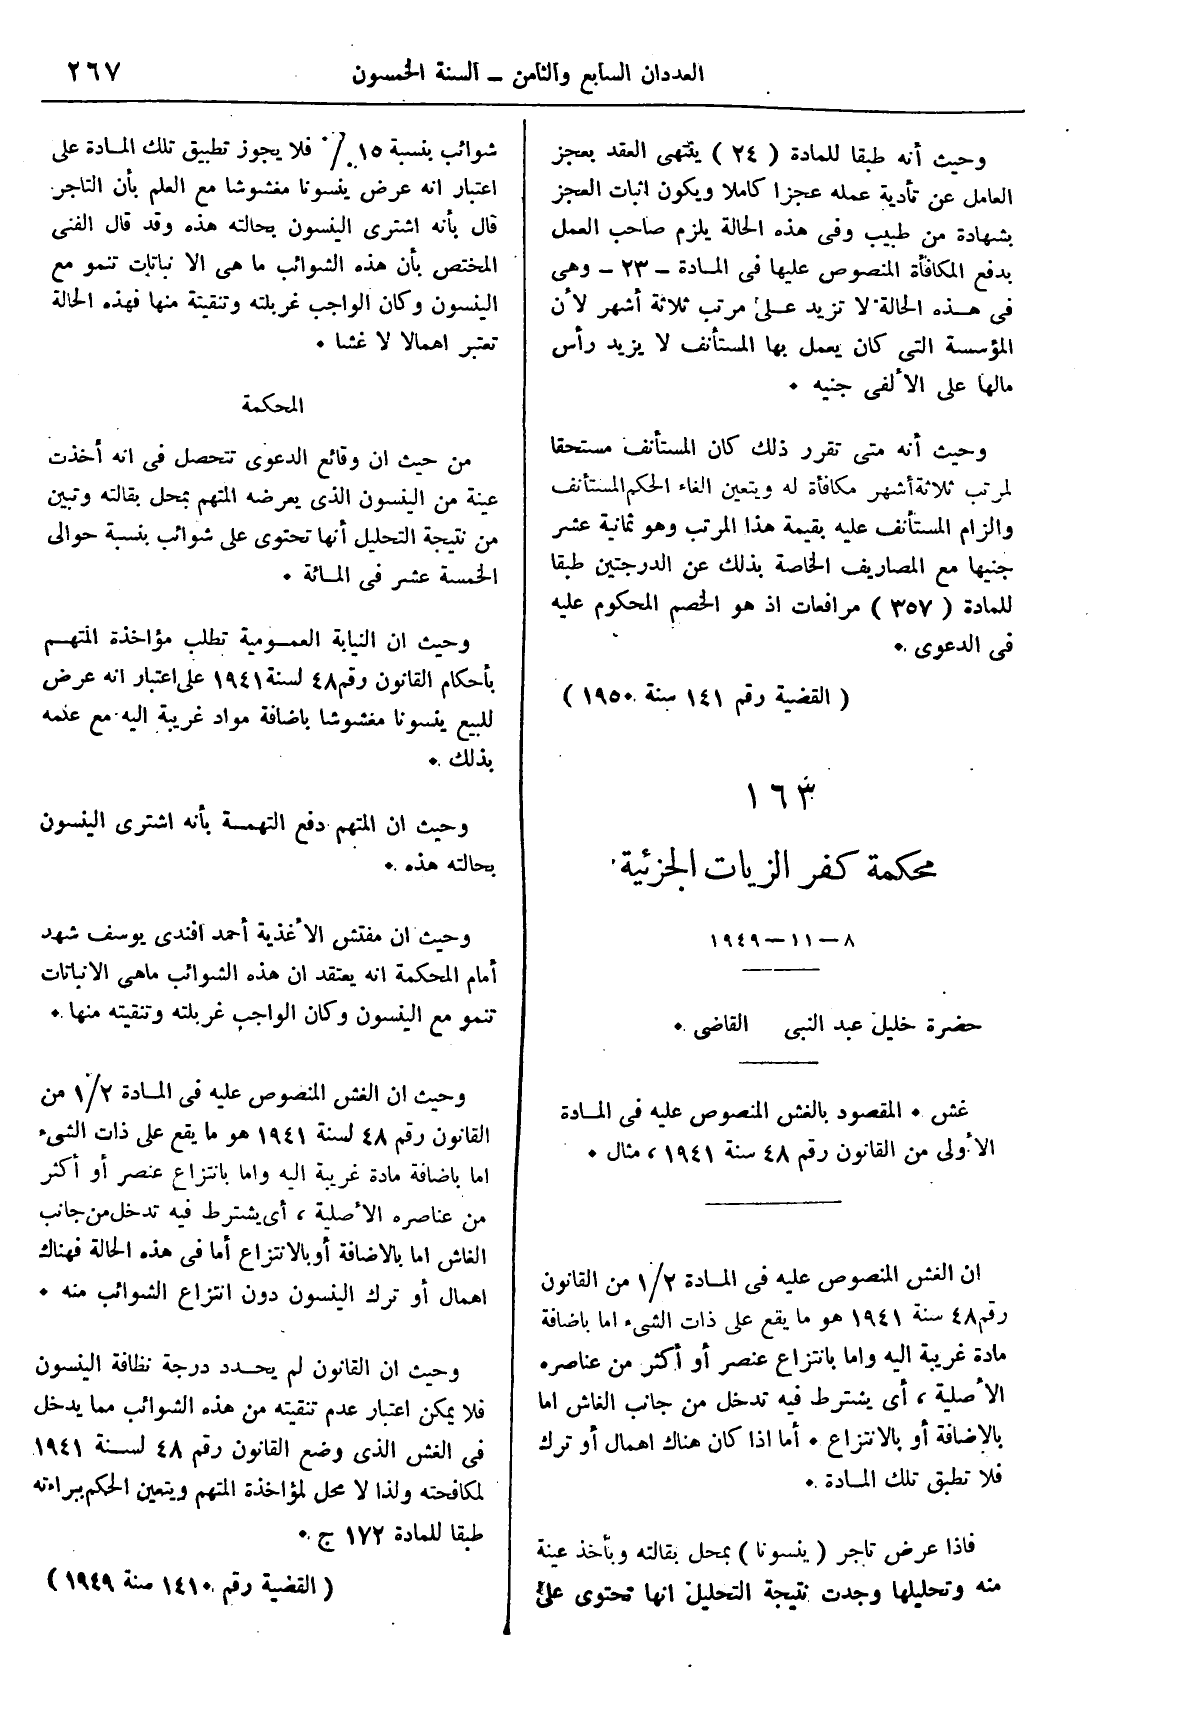 العددان السابع والثامن – السنة الخمسون
٢٦٧
وحيث أنه طبقا للمادة ( ٢٤ ) ينتهى العقد بعجز
العامل عن تأدية عمله عجزا كاملا ويكون اثبات العجز
بشهادة من طبيب وفى هذه الحالة يلزم صاحب العمل
بدفع المكافأة المنصوص عليها فى المادة – ٢٣ – وهى
فى هذه الحالة لا تزيد على مرتب ثلاثة أشهر لأن
المؤسسة التى كان يعمل بها المستأنف لا يزيد رأس
مالها على الألفى جنيه ٠
وحيث أنه متى تقرر ذلك كان المستأنف مستحقا
لمرتب ثلاثة أشهر مكافأة له ويتعين الغاء الحكم المستأنف
والزام المستأنف عليه بقيمة هذا المرتب وهو ثمانية عشر
جنيها مع المصاريف الخاصة بذلك عن الدرجتين طبقا
للمادة ( ٣٥٧ ) مرافعات اذ هو الخصم المحكوم عليه
فى الدعوى ٠
( القضية رقم ١٤١ سنة ١٩٥٠ )
١٦٣
محكمة كفر الزيات الجزئية
٨ – ١١ – ١٩٤٩
حضرة خليل عبد النبى القاضى ٠
غش ٠ المقصود بالغش المنصوص عليه فى المادة
الأولى من القانون رقم ٤٨ سنة ١٩٤١ ، مثال ٠
ان الغش المنصوص عليه فى المادة ١/٢ من القانون
رقم ٤٨ سنة ١٩٤١ هو ما يقع على ذات الشىء اما باضافة
مادة غريبة اليه واما بانتزاع عنصر أو أكثر من عناصره
الأصلية ، أى يشترط فيه تدخل من جانب الغاش اما
بالاضافة أو بالانتزاع ٠ أما اذا كان هناك اهمال أو ترك
فلا تطبق تلك المادة ٠
فاذا عرض تاجر ( ينسونا ) بمحل بقالته وبأخذ عينة
منه وتحليلها وجدت نتيجة التحليل انها تحتوى على
شوائب بنسبة ١٥ ٪ فلا يجوز تطبيق تلك المادة على
اعتبار انه عرض ينسونا مغشوشا مع العلم بأن التاجر
قال بأنه اشترى الينسون بحالته هذه وقد قال الفنى
المختص بأن هذه الشوائب ما هى الا نباتات تنمو مع
الينسون وكان الواجب غربلته وتنقيتة منها فهذه الحالة
تعتبر اهمالا لا غشا ٠
المحكمة
من حيث ان وقائع الدعوى تتحصل فى انه أخذت
عينة من الينسون الذى يعرضه المتهم بمحل بقالته وتبين
من نتيجة التحليل أنها تحتوى على شوائب بنسبة حوالى
الخمسة عشر فى المائة ٠
وحيث ان النيابة العمومية تطلب مؤاخذة المتهم
بأحكام القانون رقم ٤٨ لسنة ١٩٤١ على اعتبار انه عرض
للبيع ينسونا مغشوشا باضافة مواد غريبة اليه مع علمه
بذلك ٠
وحيث ان المتهم دفع التهمة بأنه اشترى الينسون
بحالته هذه ٠
وحيث ان مفتش الأغذية أحمد افندى يوسف شهد
أمام المحكمة انه يعتقد ان هذه الشوائب ماهى الانباتات
تنمو مع الينسون وكان الواجب غربلته وتنقيته منها ٠
وحيث ان الغش المنصوص عليه فى المادة ١/٢ من
القانون رقم ٤٨ لسنة ١٩٤١ هو ما يقع على ذات الشىء
اما باضافة مادة غريبة اليه واما بانتزاع عنصر أو أكثر
من عناصره الأصلية ، أى يشترط فيه تدخل من جانب
الغاش اما بالاضافة أو بالانتزاع أما فى هذه الحالة فهناك
اهمال أو ترك الينسون دون انتزاع الشوائب منه ٠
وحيث ان القانون لم يحدد درجة نظافة الينسون
فلا يمكن اعتبار عدم تنقيته من هذه الشوائب مما يدخل
فى الغش الذى وضع القانون رقم ٤٨ لسنة ١٩٤١
لمكافحته ولذا لا محل لمؤاخذة المتهم ويتعين الحكم ببراءته
طبقا للمادة ١٧٢ ج ٠
( القضية رقم ١٤١٠ سنة ١٩٤٩ )